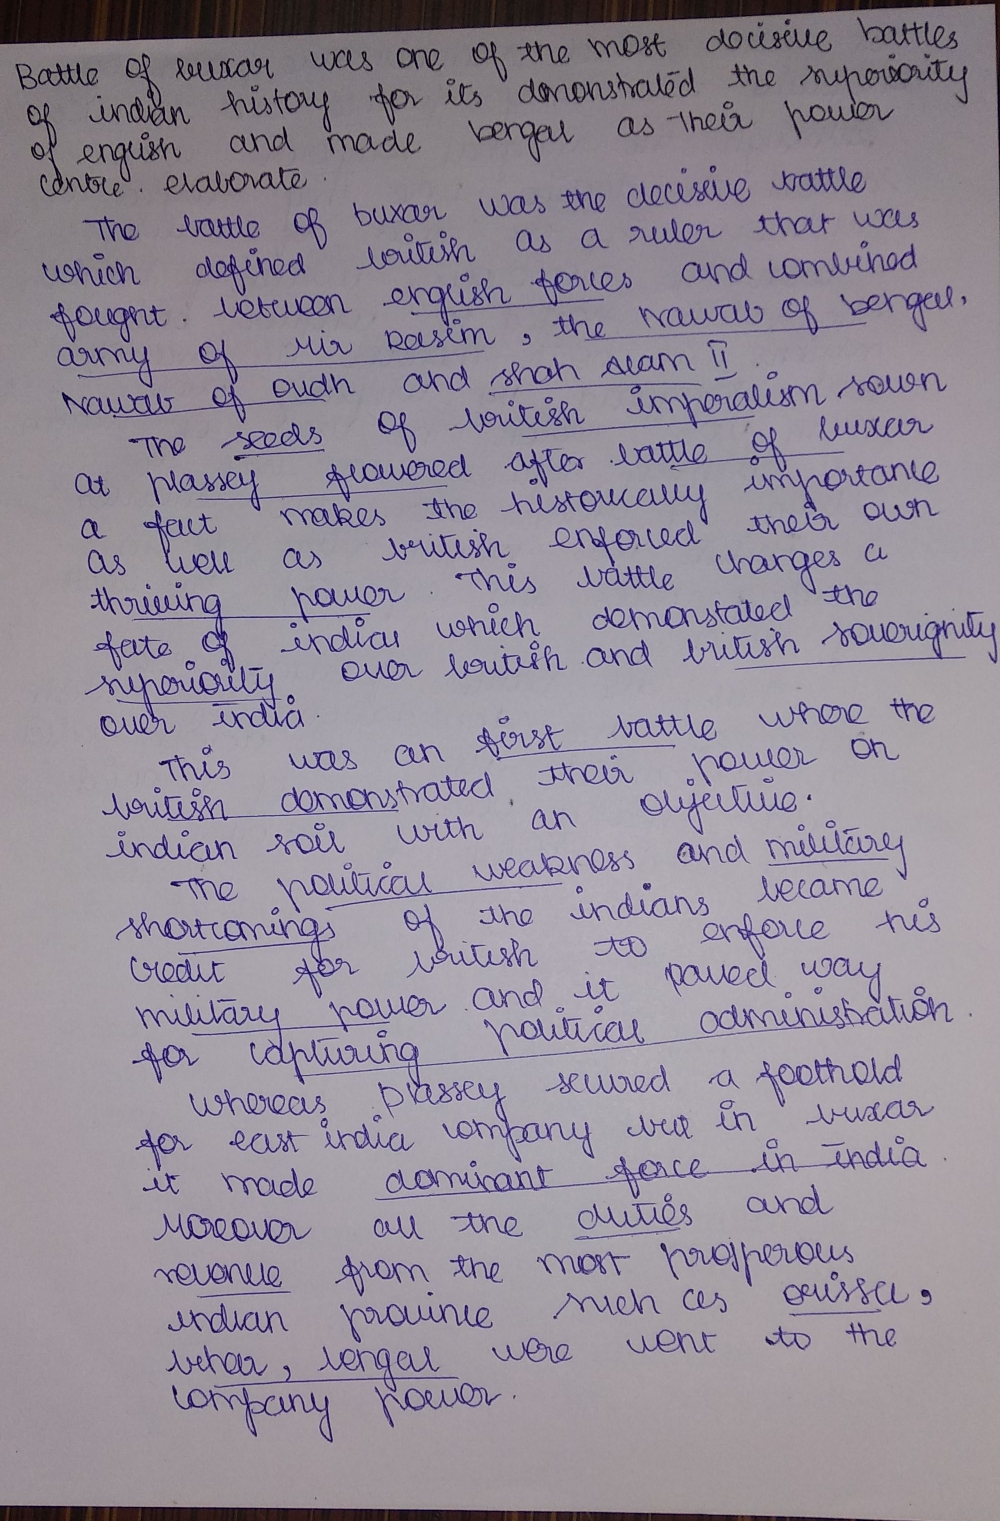 Battle of buxar was one of the most decisive battles
of indian history for its demonstrated the superiority
of english and made bengal as their power
centre. elaborate.
The battle of buxar was the decisive battle
which defined british as a ruler that was
fought. between english forces and combined
army of Mir Kasim, the Nawab of bengal,
Nawab of oudh and shah alam II.
The seeds of british imperalism sown
at plassey flowered after battle of buxar
a fact makes the historically importance
as well as british enforced their own
thriving power. This battle changes a
fate of indian which demonstated the
superiority over british and british soverignity
over india.
This was an first battle where the
british demonstrated their power on
indian soil with an objective.
The political weakness and military
shortcomings of the indians became
credit for british to enforce his
military power and it paved way
for capturing political administration.
whereas plassey secured a foothold
for east india company but in buxar
it made dominant force in india.
Moreover all the duties and
revenue from the most prosperous
indian province such as orissa,
behar, bengal were went to the
company power.